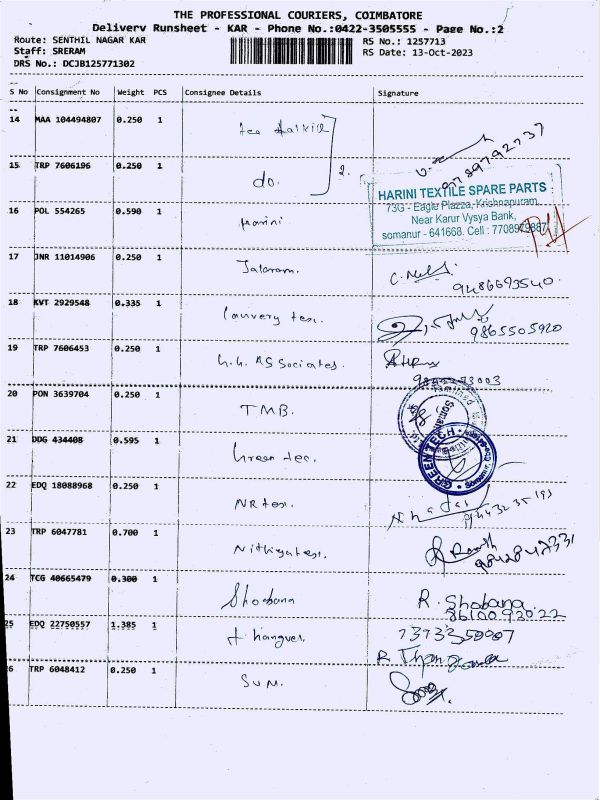 THE PROFESSIONAL COURIERS, COIMBATORE
Delivery Runsheet - KAR - Phone No.:0422-3505555 - Page No.:2
Route: SENTHIL NAGAR KAR
Staff: SRERAM
DRS No.: DCJB125771302
RS No.: 1257713
RS Date: 13-Oct-2023
S No Consignment No Weight PCS Consignee Details Signature
14 MAA 104494807 0.250 1
9789792737
15 TRP 7606196 0.250 1 do. 2.
HARINI TEXTILE SPARE PARTS
73G - Eagle Plazza, Krishnapuram,
Near Karur Vysya Bank,
somanur - 641668. Cell : 7708979887
16 POL 554265 0.590 1 Harini
17 JNR 11014906 0.250 1 Jalaram.
9486693540
18 KVT 2929548 0.335 1 Cauvery tex.
9865505920
19 TRP 7606453 0.250 1 G.G. ASSociates.
20 PON 3639704 0.250 1 TMB.
21 DDG 434408 0.595 1 Green tec.
GREEN TECH
22 EDQ 18088968 0.250 1 NR tex.
23 TRP 6047781 0.700 1 Nithiyatex.
24 TCG 40665479 0.300 1 Shobana R. Shobana
8610093022
25 EDQ 22750557 1.385 1 7373350007
26 TRP 6048412 0.250 1 SUM.